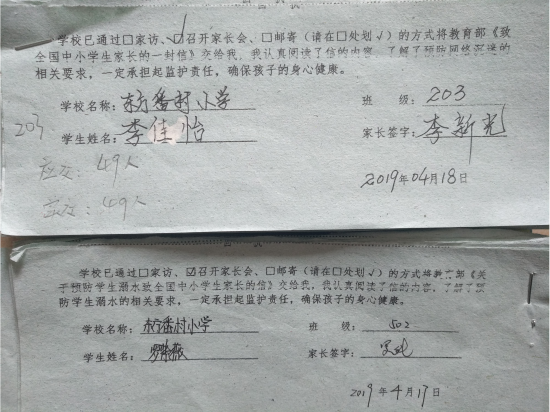 回 执
学校已通过□家访、☑召开家长会、□邮寄(请在□处划√)的方式将教育部《致
全国中小学生家长的一封信》交给我,我认真阅读了信的内容,了解了预防网络沉迷的
相关要求,一定承担起监护责任,确保孩子的身心健康。
学校名称:东方番村小学 班 级:203
203 学生姓名:李佳怡 家长签字:李新光
应交:49人
实交:49人
2019年04月18日
学校已通过□家访、☑召开家长会、□邮寄(请在□处划√)的方式将教育部《关
于预防学生溺水致全国中小学生家长的信》交给我,我认真阅读了信的内容,了解了预
防学生溺水的相关要求,一定承担起监护责任,确保孩子的身心健康。
学校名称:村小学 班 级:502
学生姓名: 家长签字:
2019年4月17日